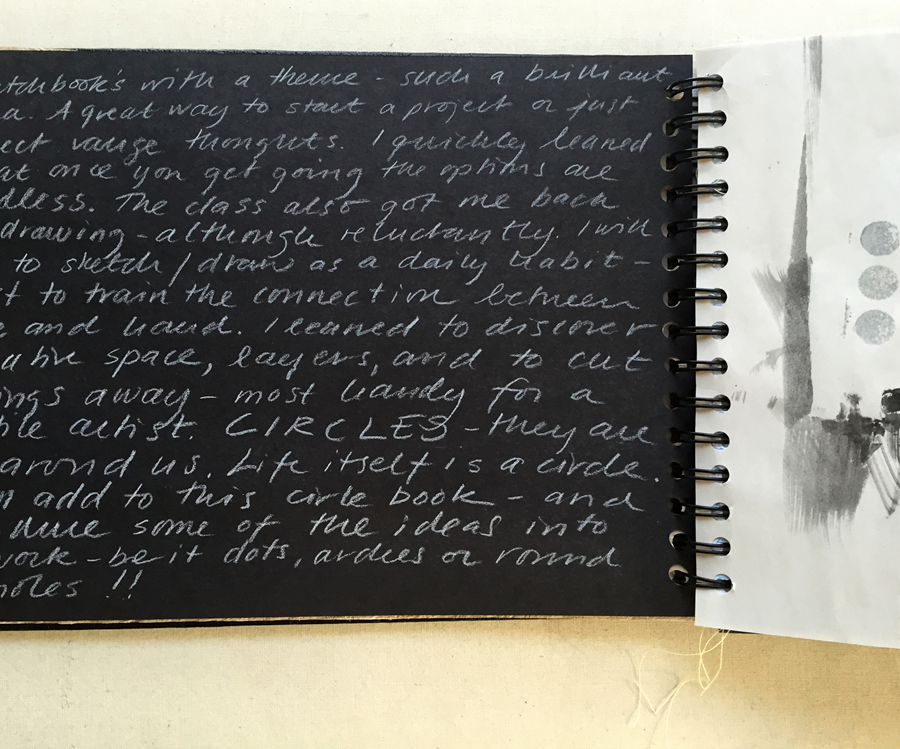 etchbook's with a theme - such a brilliant
a. A great way to start a project or just
ect vauge thoughts. I quickly leaned
at once you get going the options are
dless. The class also got me back
drawing - although reluctantly. I will
to sketch / draw as a daily habit -
st to train the connection between
e and hand. I leaned to discover
ative space, layers, and to cut
ings away - most handy for a
ile artist. CIRCLES - they are
around us. Life itself is a circle.
n add to this circle book - and
some of the ideas into
work - be it dots, circles or round
holes !!